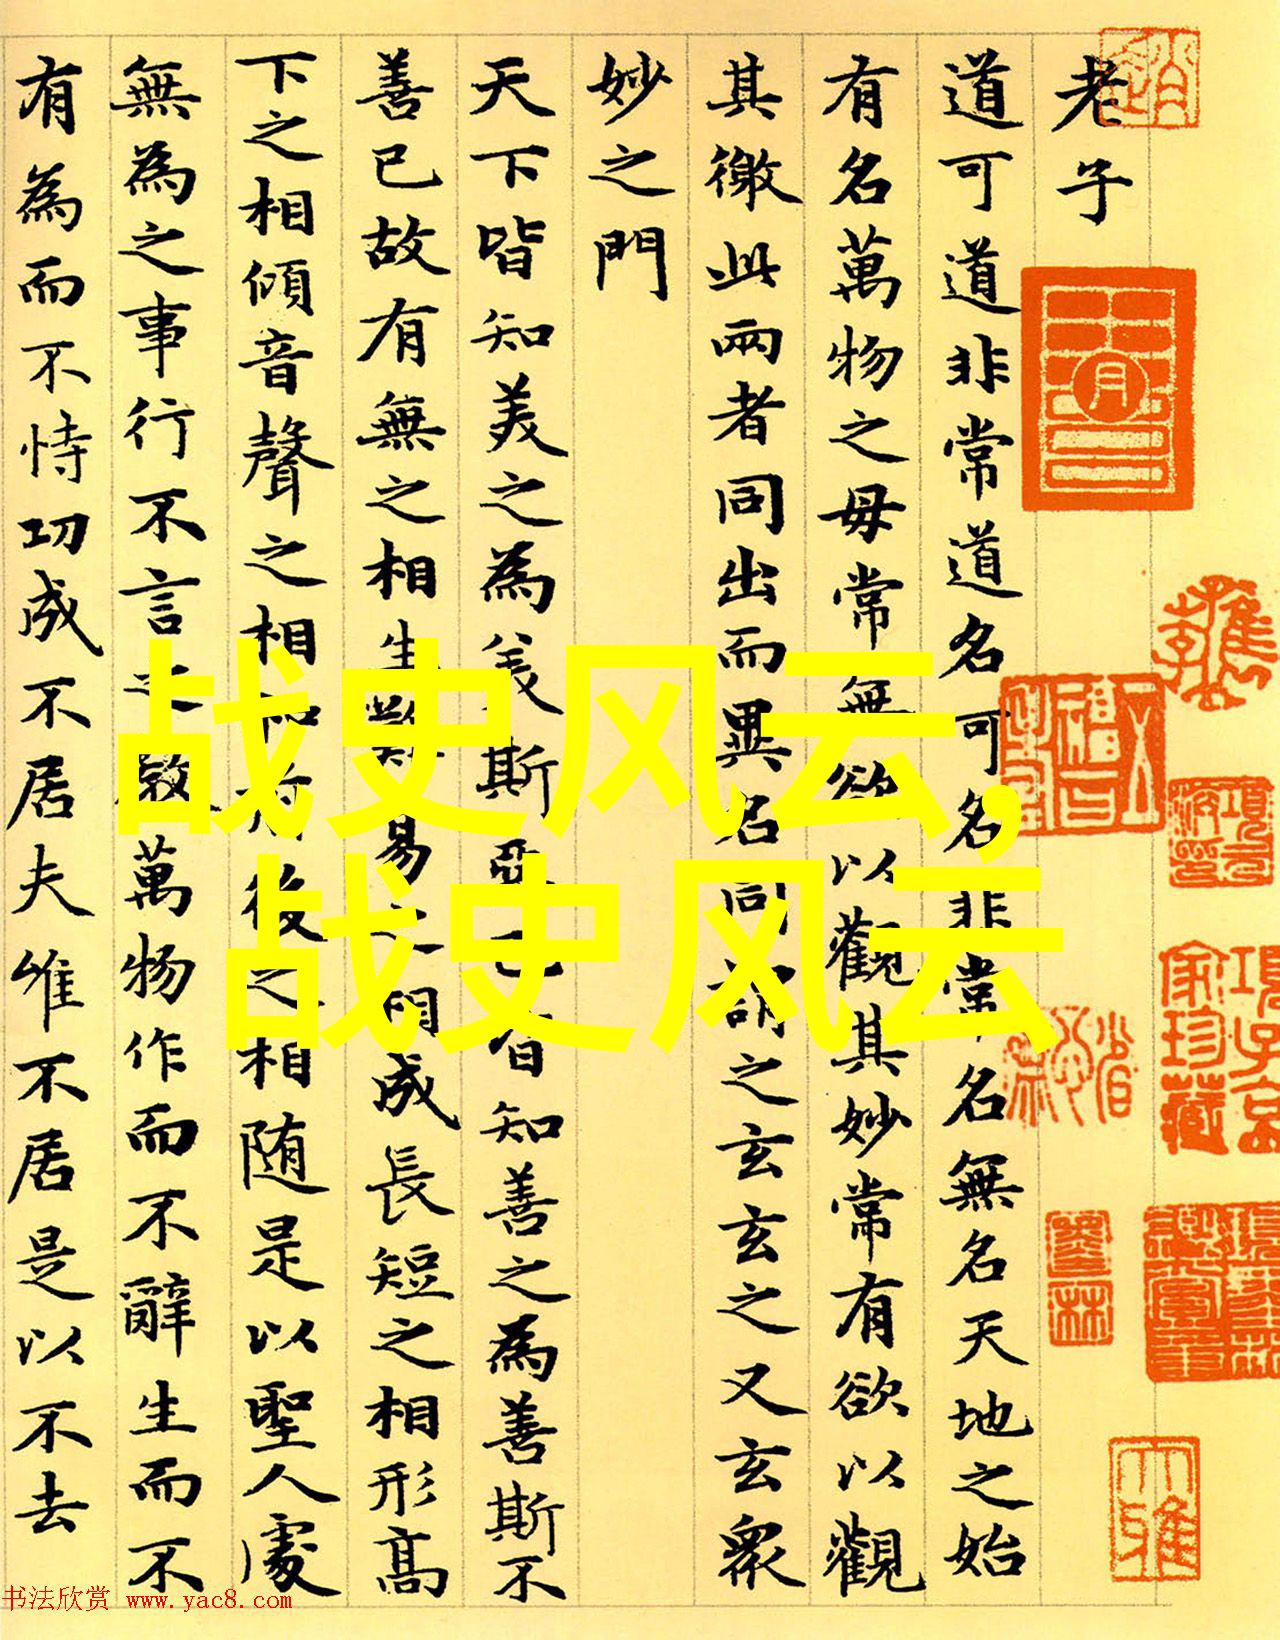 老子
道可道非常道名可名非常名無名天地之始
有名萬物之母常無欲以觀其妙常有欲以觀
其徼此兩者同出而異名同謂之玄玄之又玄衆
妙之門
天下皆知美之為美斯惡已皆知善之為善斯不
善已故有無之相生難易之相成長短之相形高
下之相傾音聲之相和前後之相随是以聖人處
無為之事行不言之教萬物作而不辭生而不
有為而不恃功成不居夫唯不居是以不去
战史风云,
战史风云
項子京
家珍藏
书法欣赏 www.yac8.com